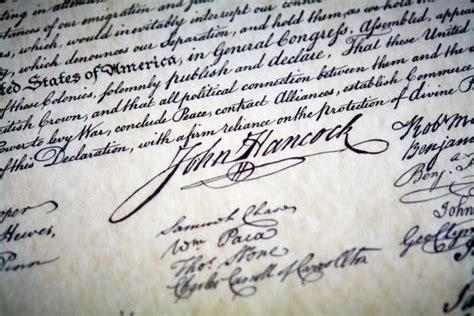 stances of our emigration and
which, would inevitably interrupt our connec
which denounces our Separation, and hold them, as we hold
ted States of America, in General Congress, Assembled, appea
of these Colonies, solemnly publish and declare, That these United
itish Crown, and that all political connection between them and the
Power to levy War, conclude Peace, contract Alliances, establish Commerce
of this Declaration, with a firm reliance on the protection of divine P
John Hancock
Rob Mo
Benjamin
Benj.
John
Geo Clym
oper
Hewes,
Penn
Samuel Chase
Wm Paca
Thos. Stone
Charles Carroll of Carrollton